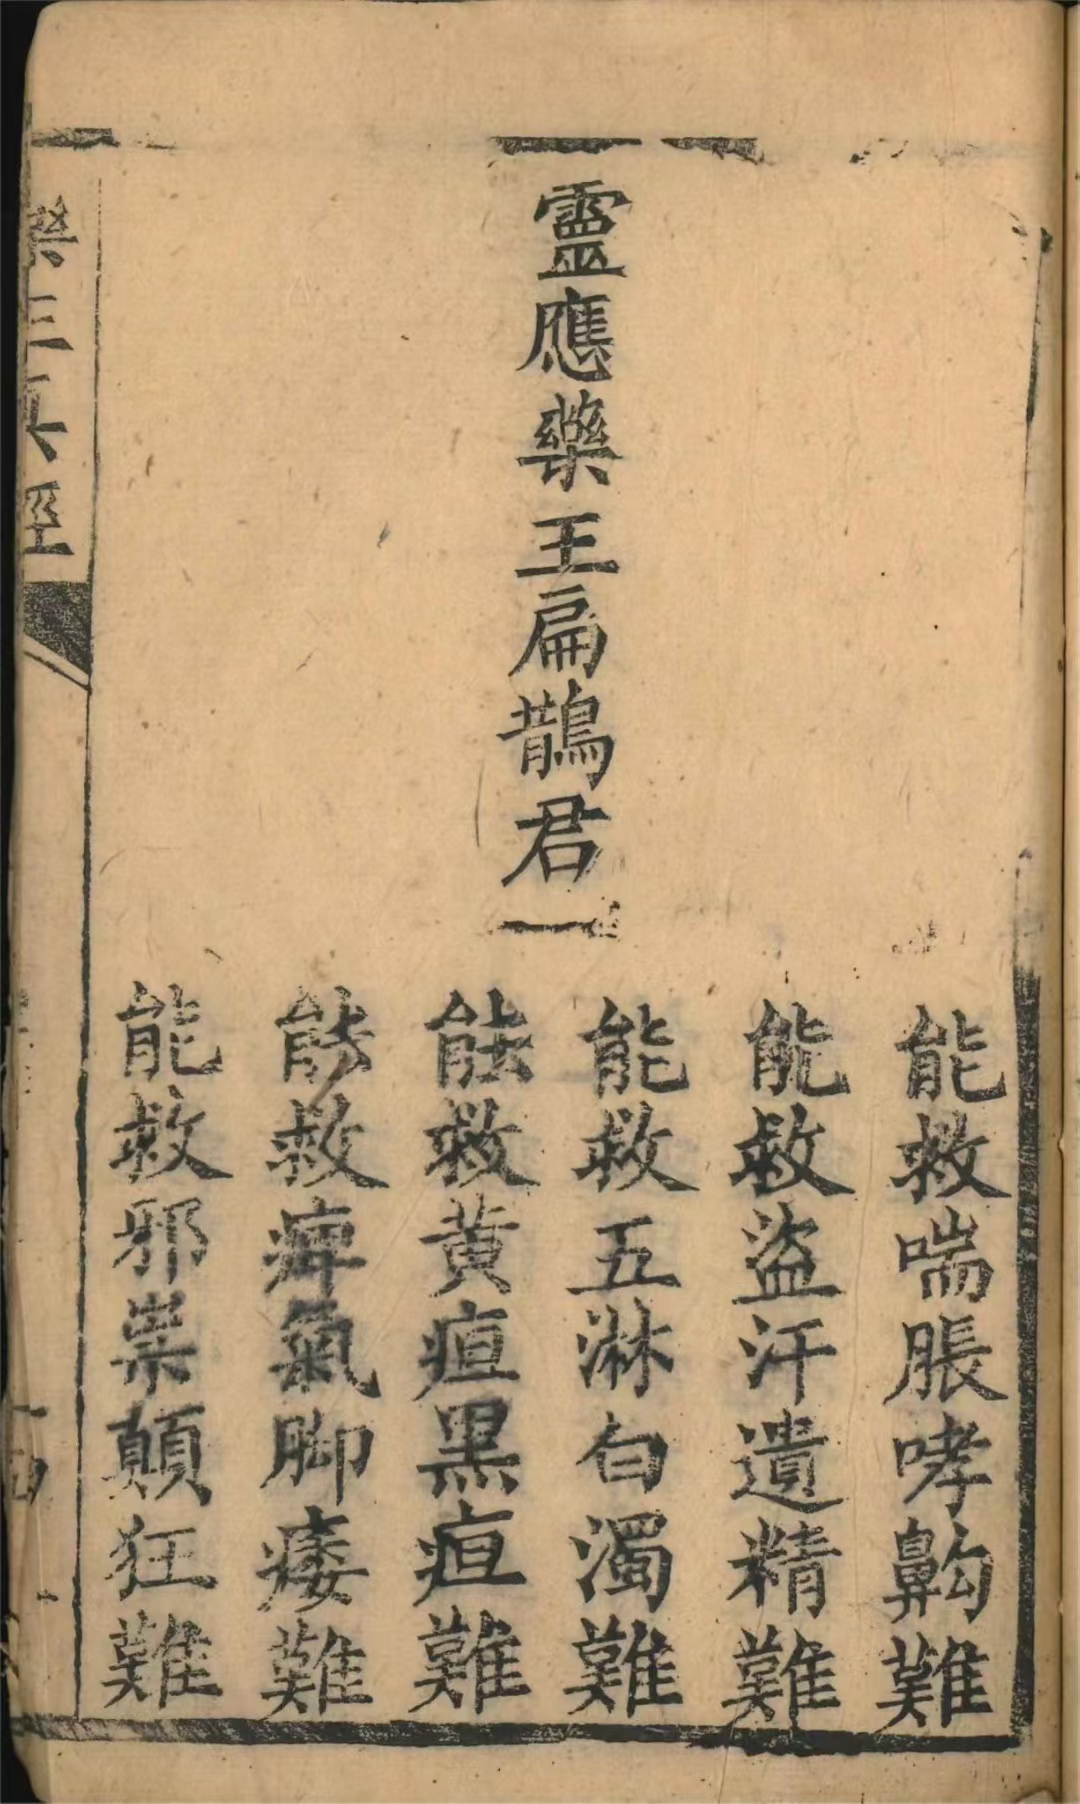 靈應藥王扁鵲君
能救喘脹哮齁難
能救盜汗遺精難
能救五淋白濁難
能救黄疸黑疸難
能救痺氣脚痿難
能救邪祟顛狂難
藥王真經